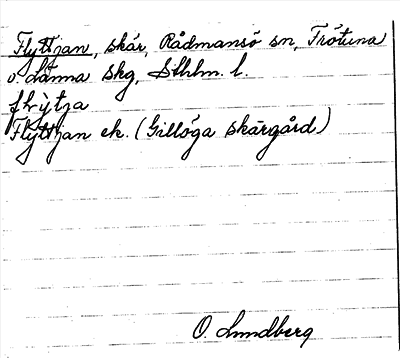 Flyttjan, skär, Rådmansö sn, Frötuna
o. Länna skg, Sthlm. l.
flỳtja
Flyttjan ek. (Gillöga skärgård)
O Lundberg